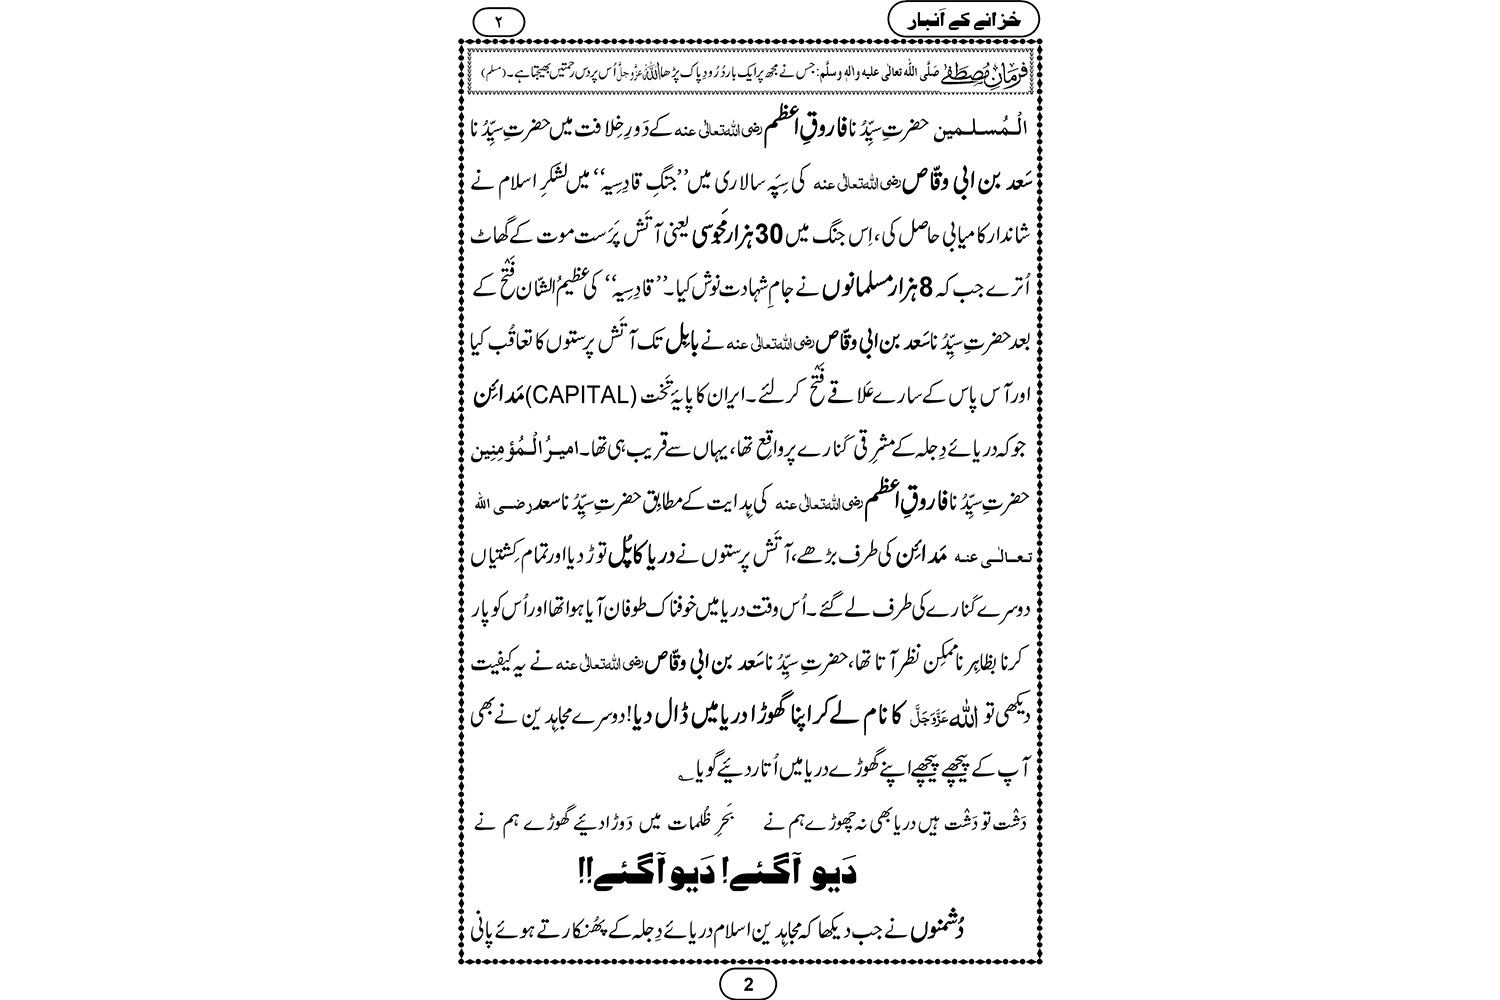 خزانے کے اَنبار
۲
فرمانِ مُصطَفٰے صَلَّی اللہ تعالٰی علیہ والہٖ وسلَّم: جس نے مجھ پر ایک بار دُرُودِ پاک پڑھا اللہ عَزَّوَجَلَّ اُس پر دس رحمتیں بھیجتا ہے۔ (مسلم)
الْمُسلمین حضرتِ سیِّدُنا فاروقِ اعظم رضی اللہ تعالٰی عنہ کے دَورِ خِلافت میں حضرتِ سیِّدُنا
سَعد بن ابی وقّاص رضی اللہ تعالٰی عنہ کی سِپَہ سالاری میں ’’جنگِ قادِسِیہ‘‘ میں لشکرِ اسلام نے
شاندار کامیابی حاصل کی، اِس جنگ میں 30 ہزار مَجوسی یعنی آتَش پَرَست موت کے گھاٹ
اُترے جب کہ 8 ہزار مسلمانوں نے جامِ شہادت نوش کیا۔ ’’قادِسِیہ‘‘ کی عظیمُ الشّان فَتْح کے
بعد حضرتِ سیِّدُنا سَعد بن ابی وقّاص رضی اللہ تعالٰی عنہ نے بابِل تک آتَش پرستوں کا تعاقُب کیا
اور آس پاس کے سارے عَلاقے فَتْح کر لئے۔ ایران کا پایۂ تَخت (CAPITAL) مَدائِن
جو کہ دریائے دِجلہ کے مشرِقی کَنارے پر واقِع تھا، یہاں سے قریب ہی تھا۔ امیرُ الْمُؤمِنِین
حضرتِ سیِّدُنا فاروقِ اعظم رضی اللہ تعالٰی عنہ کی ہِدایت کے مطابِق حضرتِ سیِّدُنا سعد رضی اللہ
تعالٰی عنہ مَدائِن کی طرف بڑھے، آتَش پرستوں نے دریا کا پُل توڑ دیا اور تمام کِشتیاں
دوسرے کَنارے کی طرف لے گئے۔ اُس وقت دریا میں خوفناک طوفان آیا ہوا تھا اور اُس کو پار
کرنا بظاہِر ناممکِن نظر آتا تھا، حضرتِ سیِّدُنا سَعد بن ابی وقّاص رضی اللہ تعالٰی عنہ نے یہ کیفیت
دیکھی تو اللہ عَزَّوَجَلَّ کا نام لے کر اپنا گھوڑا دریا میں ڈال دیا! دوسرے مجاہِدین نے بھی
آپ کے پیچھے پیچھے اپنے گھوڑے دریا میں اُتار دئیے گویا ؎
دَشْت تو دَشْت ہیں دریا بھی نہ چھوڑے ہم نے بَحرِ ظُلمات میں دَوڑا دئیے گھوڑے ہم نے
دَیو آگئے! دَیو آگئے!!
دُشمنوں نے جب دیکھا کہ مجاہِدینِ اسلام دریائے دِجلہ کے پُھنکارتے ہوئے پانی
2